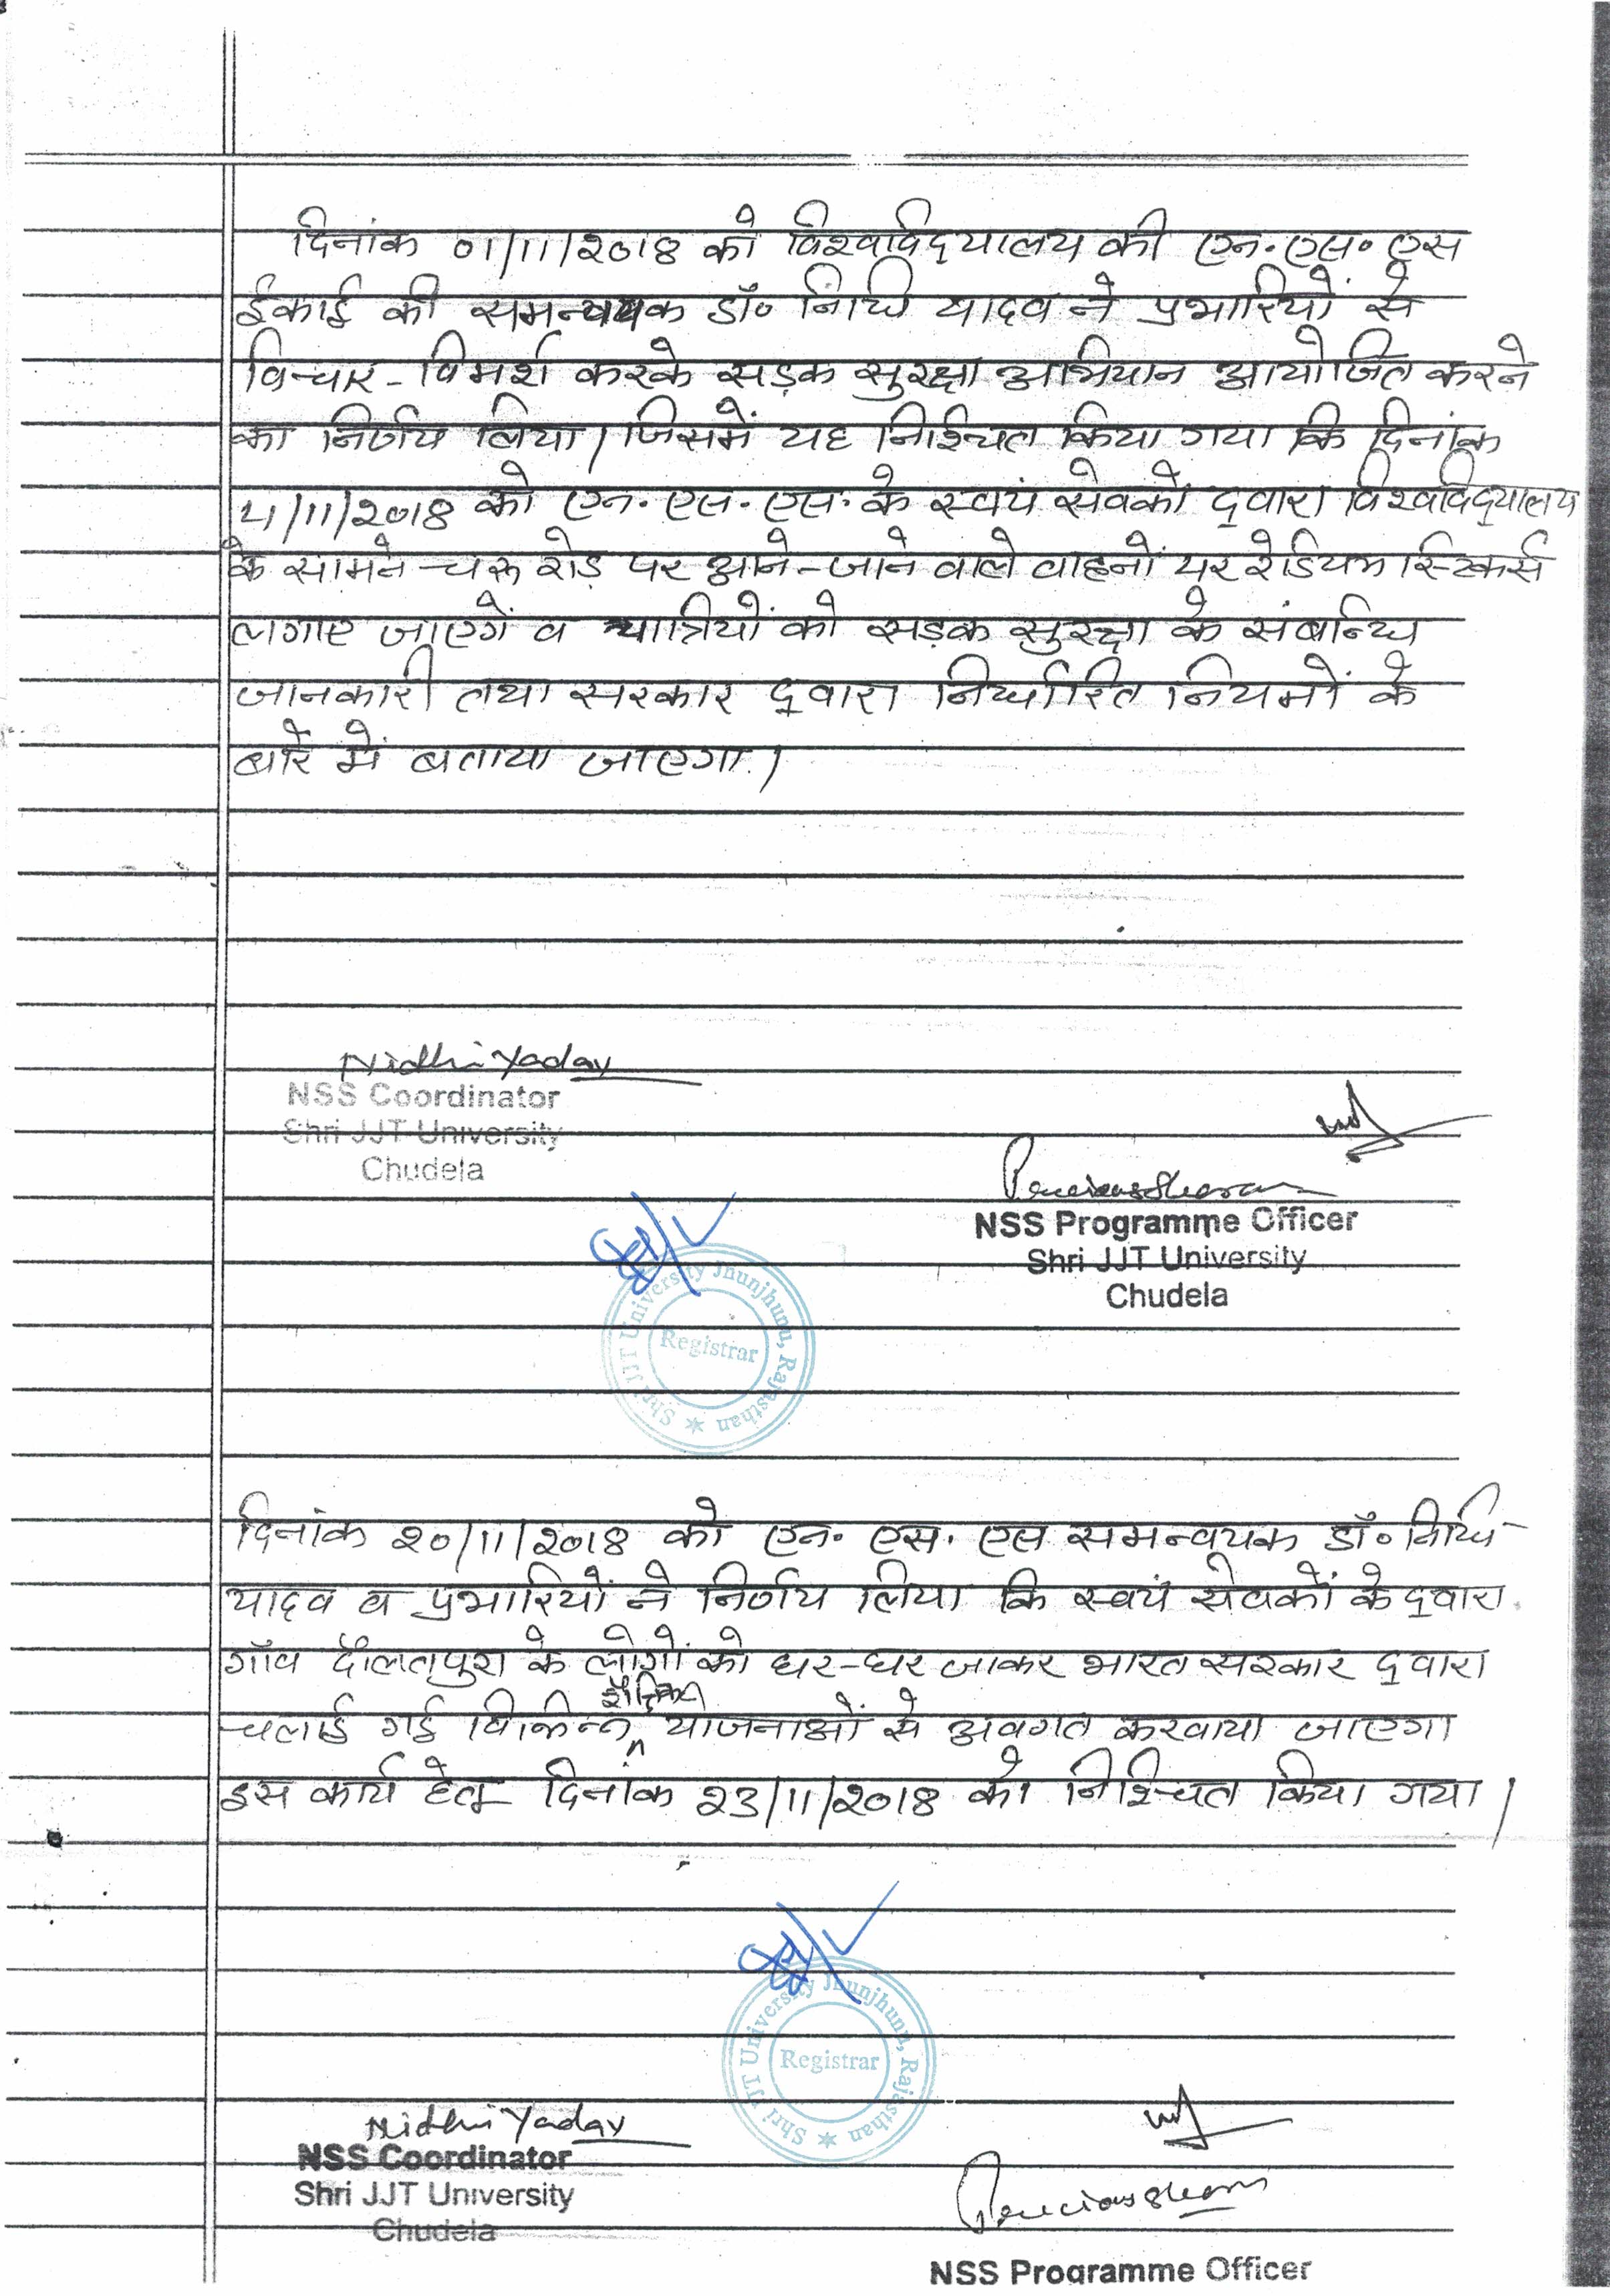 दिनांक 01/11/2018 को विश्वविद्यालय की एन.एस.एस
ईकाई की समन्वयक डॉ० निधि यादव ने प्रभारियों से
विचार-विमर्श करके सड़क सुरक्षा अभियान आयोजित करने
का निर्णय लिया। जिसमें यह निश्चित किया गया कि दिनांक
4/11/2018 को एन.एस.एस. के स्वयं सेवको द्वारा विश्वविद्यालय
के सामने चुरू रोड़ पर आने-जाने वाले वाहनों पर रेडियम स्टिकर्स
लगाए जाएगें व यात्रियों को सड़क सुरक्षा के संबन्धि
जानकारी तथा सरकार द्वारा निर्धारित नियमों के
बारे में बताया जाएगा।
Nidhi Yadav
NSS Coordinator
Shri JJT University
Chudela
NSS Programme Officer
Shri JJT University
Chudela
Shri JJT University Jhunjhunu, Rajasthan
Registrar
दिनांक 20/11/2018 को एन. एस. एस समन्वयक डॉ० निधि
यादव व प्रभारियों ने निर्णय लिया कि स्वयं सेवकों के द्वारा
गाँव दौलतपुरा के लोगों को घर-घर जाकर भारत सरकार द्वारा
चलाई गई विभिन्न योजनाओं से अवगत करवाया जाएगा
इस कार्य हेतू दिनांक 23/11/2018 को निश्चित किया गया।
Shri JJT University Jhunjhunu, Rajasthan
Registrar
Nidhi Yadav
NSS Coordinator
Shri JJT University
Chudela
NSS Programme Officer